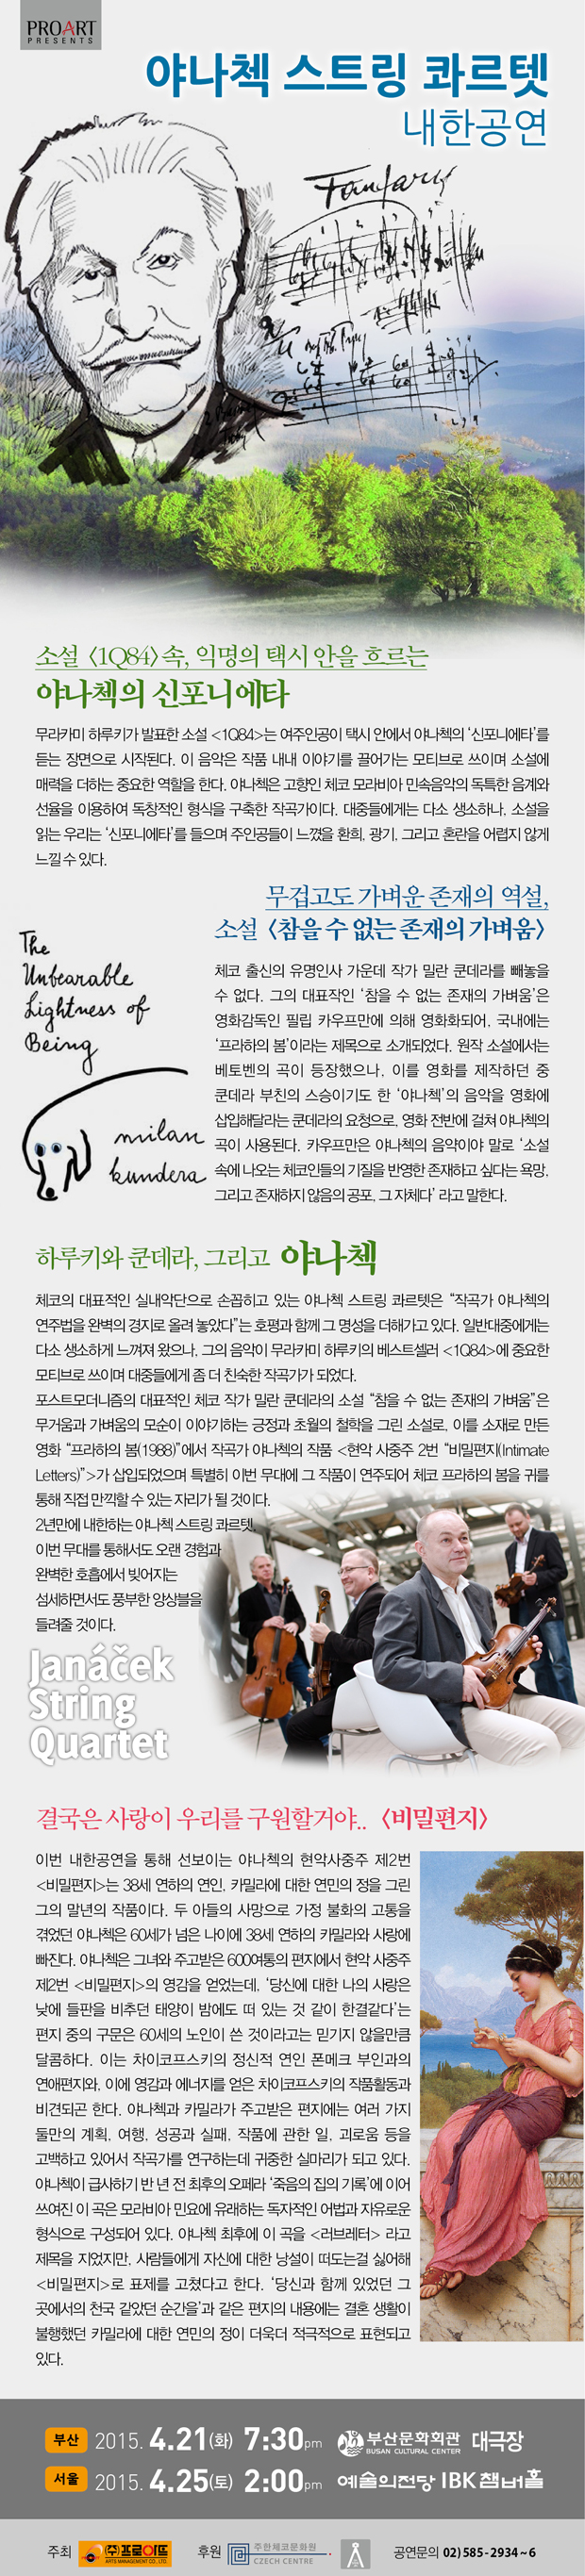 PROART
PRESENTS
야나첵 스트링 콰르텟
내한공연
소설 <1Q84>속, 익명의 택시 안을 흐르는
야나첵의 신포니에타
무라카미 하루키가 발표한 소설 <1Q84>는 여주인공이 택시 안에서 야나첵의 '신포니에타'를
듣는 장면으로 시작된다. 이 음악은 작품 내내 이야기를 끌어가는 모티브로 쓰이며 소설에
매력을 더하는 중요한 역할을 한다. 야나첵은 고향인 체코 모라비아 민속음악의 독특한 음계와
선율을 이용하여 독창적인 형식을 구축한 작곡가이다. 대중들에게는 다소 생소하나, 소설을
읽는 우리는 '신포니에타'를 들으며 주인공들이 느꼈을 환희, 광기, 그리고 혼란을 어렵지 않게
느낄 수 있다.
무겁고도 가벼운 존재의 역설,
소설 <참을 수 없는 존재의 가벼움>
The
Unbearable
Lightness of
Being
milan
kundera
체코 출신의 유명인사 가운데 작가 밀란 쿤데라를 빼놓을
수 없다. 그의 대표작인 '참을 수 없는 존재의 가벼움'은
영화감독인 필립 카우프만에 의해 영화화되어, 국내에는
'프라하의 봄'이라는 제목으로 소개되었다. 원작 소설에서는
베토벤의 곡이 등장했으나, 이를 영화를 제작하던 중
쿤데라 부친의 스승이기도 한 '야나첵'의 음악을 영화에
삽입해달라는 쿤데라의 요청으로, 영화 전반에 걸쳐 야나첵의
곡이 사용된다. 카우프만은 야나첵의 음악이야 말로 '소설
속에 나오는 체코인들의 기질을 반영한 존재하고 싶다는 욕망,
그리고 존재하지 않음의 공포, 그 자체다' 라고 말한다.
하루키와 쿤데라, 그리고 야나첵
체코의 대표적인 실내악단으로 손꼽히고 있는 야나첵 스트링 콰르텟은 "작곡가 야나첵의
연주법을 완벽의 경지로 올려 놓았다"는 호평과 함께 그 명성을 더해가고 있다. 일반대중에게는
다소 생소하게 느껴져 왔으나, 그의 음악이 무라카미 하루키의 베스트셀러 <1Q84>에 중요한
모티브로 쓰이며 대중들에게 좀 더 친숙한 작곡가가 되었다.
포스트모더니즘의 대표적인 체코 작가 밀란 쿤데라의 소설 "참을 수 없는 존재의 가벼움"은
무거움과 가벼움의 모순이 이야기하는 긍정과 초월의 철학을 그린 소설로, 이를 소재로 만든
영화 "프라하의 봄(1988)"에서 작곡가 야나첵의 작품 <현악 사중주 2번 "비밀편지(Intimate
Letters)">가 삽입되었으며 특별히 이번 무대에 그 작품이 연주되어 체코 프라하의 봄을 귀를
통해 직접 만끽할 수 있는 자리가 될 것이다.
2년만에 내한하는 야나첵 스트링 콰르텟,
이번 무대를 통해서도 오랜 경험과
완벽한 호흡에서 빚어지는
섬세하면서도 풍부한 앙상블을
들려줄 것이다.
Janáček
String
Quartet
결국은 사랑이 우리를 구원할거야.. <비밀편지>
이번 내한공연을 통해 선보이는 야나첵의 현악사중주 제2번
<비밀편지>는 38세 연하의 연인, 카밀라에 대한 연민의 정을 그린
그의 말년의 작품이다. 두 아들의 사망으로 가정 불화의 고통을
겪었던 야나첵은 60세가 넘은 나이에 38세 연하의 카밀라와 사랑에
빠진다. 야나첵은 그녀와 주고받은 600여통의 편지에서 현악 사중주
제2번 <비밀편지>의 영감을 얻었는데, '당신에 대한 나의 사랑은
낮에 들판을 비추던 태양이 밤에도 떠 있는 것 같이 한결같다'는
편지 중의 구문은 60세의 노인이 쓴 것이라고는 믿기지 않을만큼
달콤하다. 이는 차이코프스키의 정신적 연인 폰메크 부인과의
연애편지와, 이에 영감과 에너지를 얻은 차이코프스키의 작품활동과
비견되곤 한다. 야나첵과 카밀라가 주고받은 편지에는 여러 가지
둘만의 계획, 여행, 성공과 실패, 작품에 관한 일, 괴로움 등을
고백하고 있어서 작곡가를 연구하는데 귀중한 실마리가 되고 있다.
야나첵이 급사하기 반 년 전 최후의 오페라 '죽음의 집의 기록'에 이어
쓰여진 이 곡은 모라비아 민요에 유래하는 독자적인 어법과 자유로운
형식으로 구성되어 있다. 야나첵 최후에 이 곡을 <러브레터> 라고
제목을 지었지만, 사람들에게 자신에 대한 낭설이 떠도는걸 싫어해
<비밀편지>로 표제를 고쳤다고 한다. '당신과 함께 있었던 그
곳에서의 천국 같았던 순간을'과 같은 편지의 내용에는 결혼 생활이
불행했던 카밀라에 대한 연민의 정이 더욱더 적극적으로 표현되고
있다.
부산 2015. 4.21(화) 7:30pm 부산문화회관 대극장
BUSAN CULTURAL CENTER
서울 2015. 4.25(토) 2:00pm 예술의전당 IBK챔버홀
주최 (주)프로아트 후원 주한체코문화원 공연문의 02) 585-2934~6
ARTS MANAGEMENT CO., LTD. CZECH CENTRE